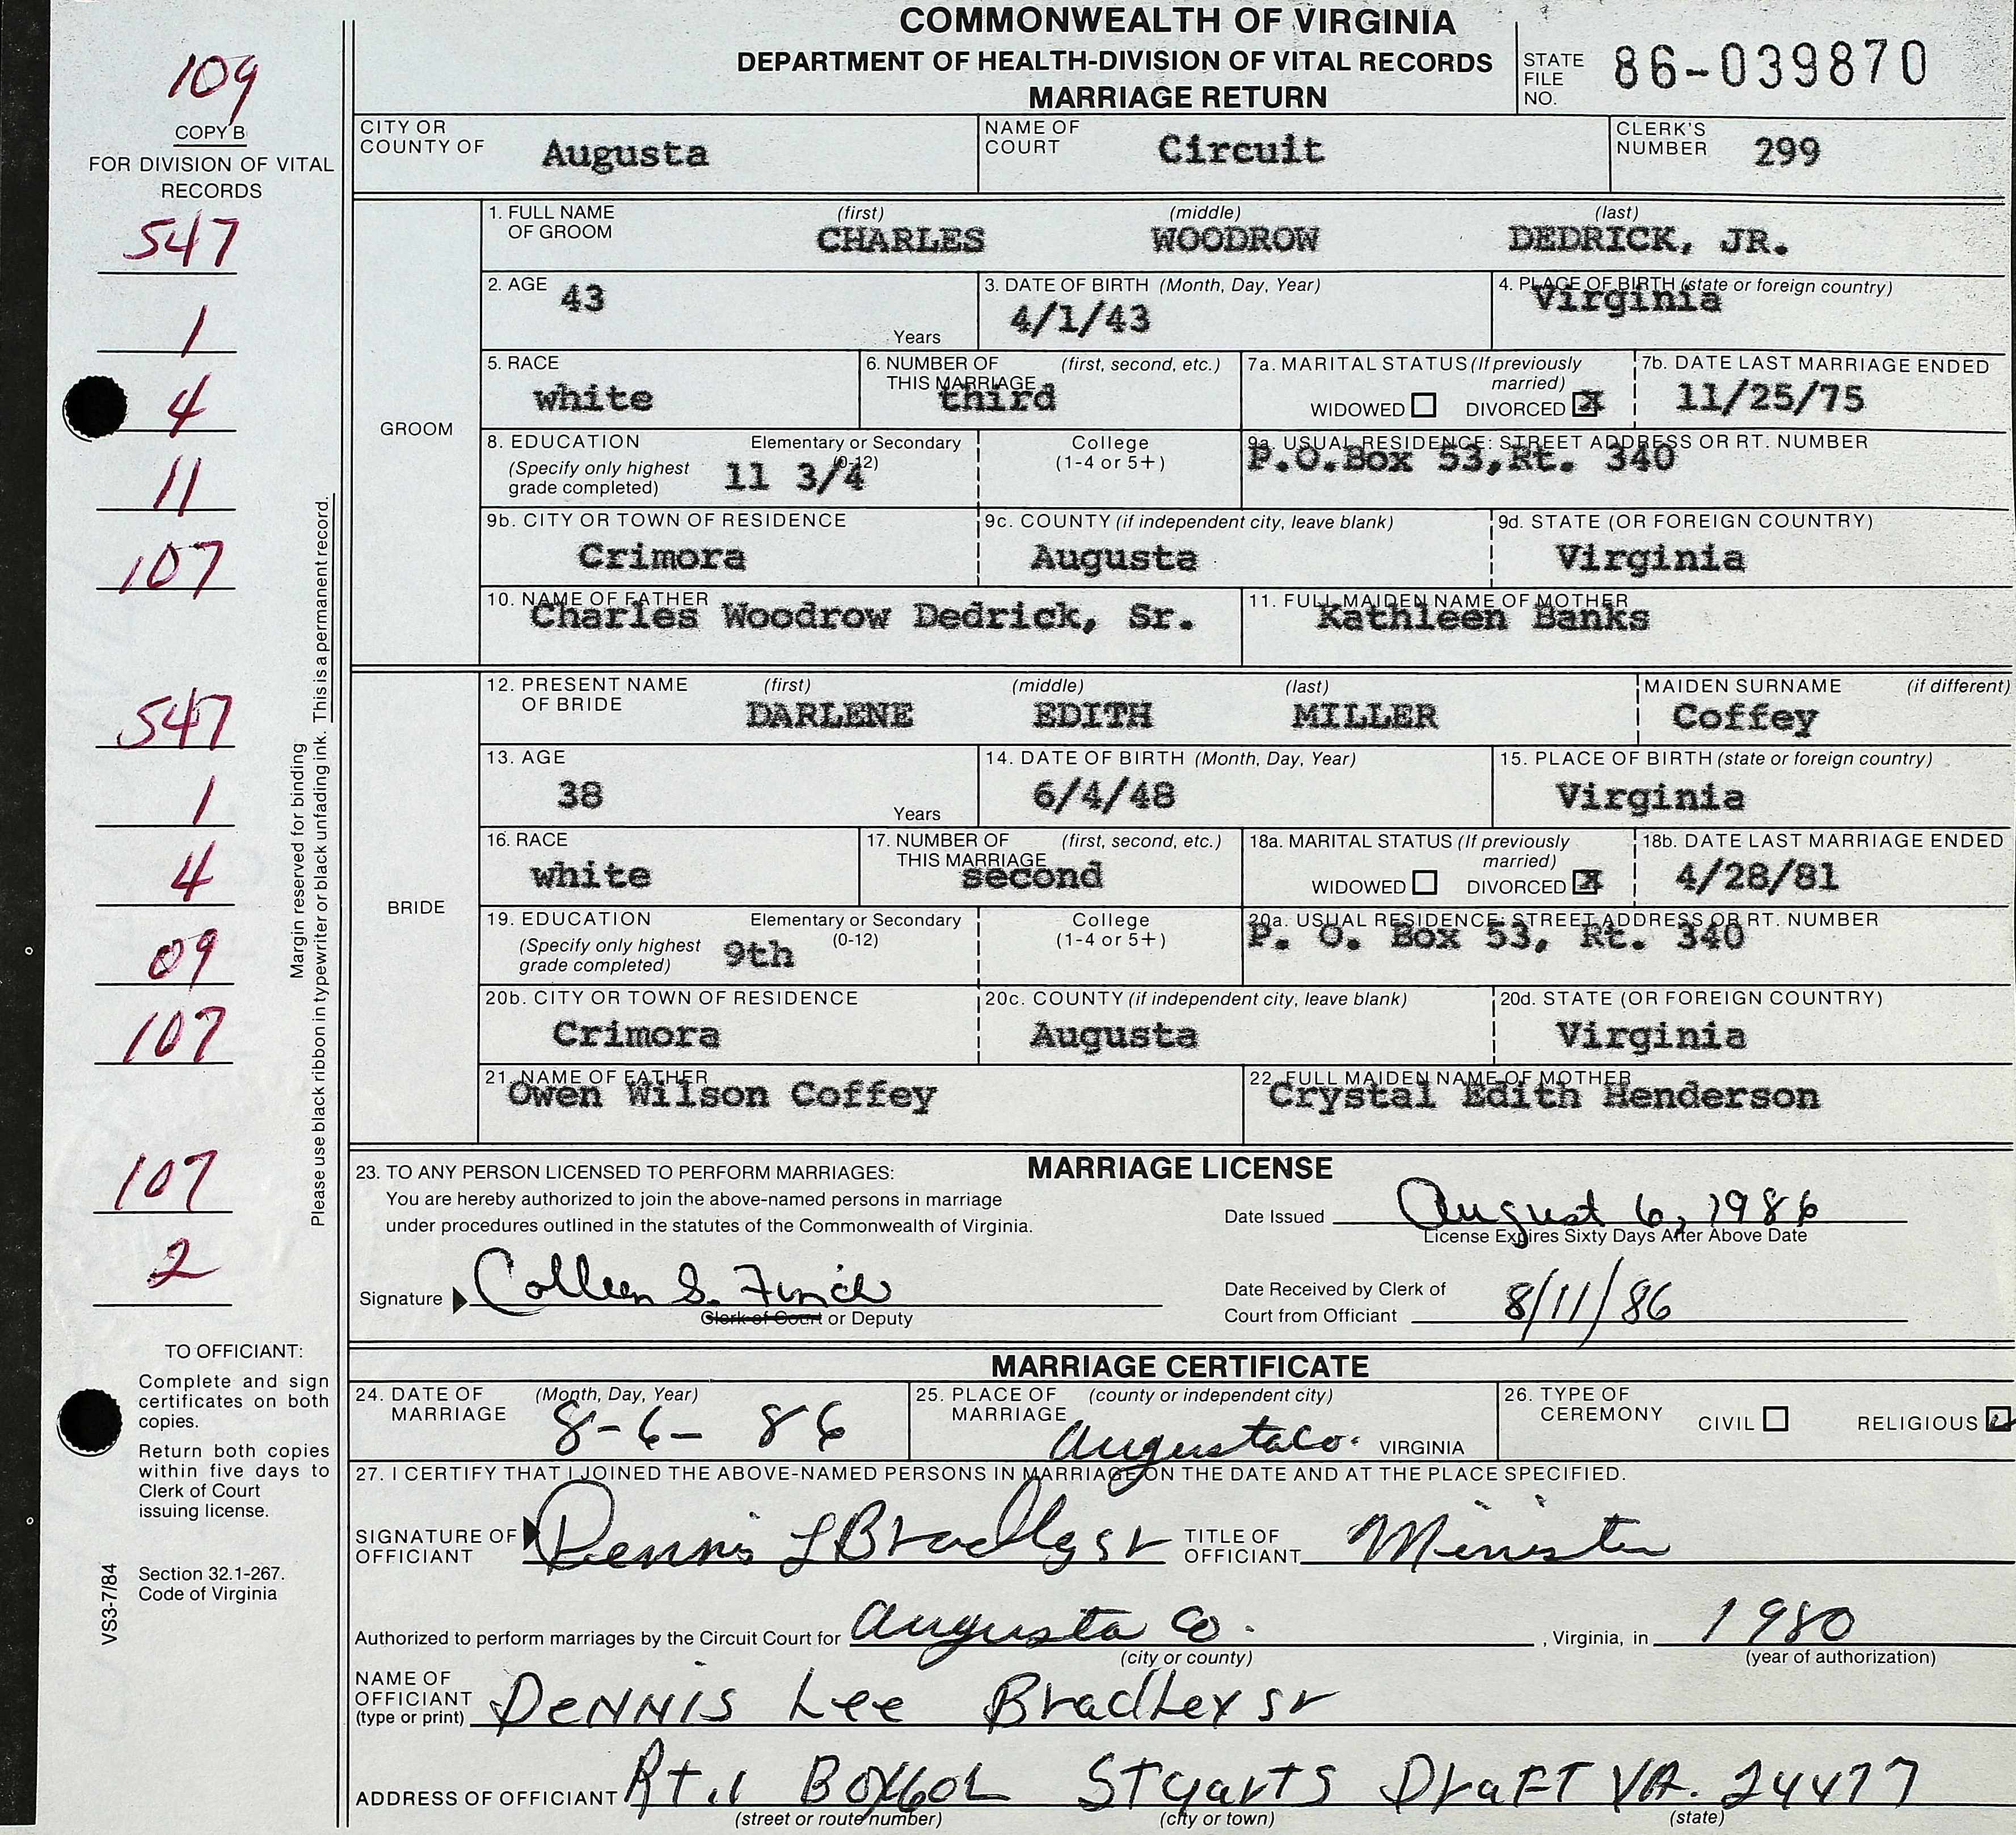 COMMONWEALTH OF VIRGINIA
DEPARTMENT OF HEALTH-DIVISION OF VITAL RECORDS
MARRIAGE RETURN
STATE FILE NO. 86-039870
109
COPY B
FOR DIVISION OF VITAL RECORDS
547
1
4
11
107
547
1
4
09
107
107
2
Margin reserved for binding
Please use black ribbon in typewriter or black unfading ink. This is a permanent record.
TO OFFICIANT:
Complete and sign
certificates on both
copies.
Return both copies
within five days to
Clerk of Court
issuing license.
Section 32.1-267.
Code of Virginia
VS3-7/84
CITY OR COUNTY OF Augusta
NAME OF COURT Circuit
CLERK'S NUMBER 299
GROOM
1. FULL NAME OF GROOM (first) CHARLES (middle) WOODROW (last) DEDRICK, JR.
2. AGE 43 Years
3. DATE OF BIRTH (Month, Day, Year) 4/1/43
4. PLACE OF BIRTH (state or foreign country) Virginia
5. RACE white
6. NUMBER OF THIS MARRIAGE (first, second, etc.) third
7a. MARITAL STATUS (If previously married) WIDOWED DIVORCED X
7b. DATE LAST MARRIAGE ENDED 11/25/75
8. EDUCATION (Specify only highest grade completed) Elementary or Secondary (0-12) 11 3/4 College (1-4 or 5+)
9a. USUAL RESIDENCE: STREET ADDRESS OR RT. NUMBER P.O.Box 53,Rt. 340
9b. CITY OR TOWN OF RESIDENCE Crimora
9c. COUNTY (if independent city, leave blank) Augusta
9d. STATE (OR FOREIGN COUNTRY) Virginia
10. NAME OF FATHER Charles Woodrow Dedrick, Sr.
11. FULL MAIDEN NAME OF MOTHER Kathleen Banks
BRIDE
12. PRESENT NAME OF BRIDE (first) DARLENE (middle) EDITH (last) MILLER MAIDEN SURNAME (if different) Coffey
13. AGE 38 Years
14. DATE OF BIRTH (Month, Day, Year) 6/4/48
15. PLACE OF BIRTH (state or foreign country) Virginia
16. RACE white
17. NUMBER OF THIS MARRIAGE (first, second, etc.) second
18a. MARITAL STATUS (If previously married) WIDOWED DIVORCED X
18b. DATE LAST MARRIAGE ENDED 4/28/81
19. EDUCATION (Specify only highest grade completed) Elementary or Secondary (0-12) 9th College (1-4 or 5+)
20a. USUAL RESIDENCE: STREET ADDRESS OR RT. NUMBER P. O. Box 53, Rt. 340
20b. CITY OR TOWN OF RESIDENCE Crimora
20c. COUNTY (if independent city, leave blank) Augusta
20d. STATE (OR FOREIGN COUNTRY) Virginia
21. NAME OF FATHER Owen Wilson Coffey
22. FULL MAIDEN NAME OF MOTHER Crystal Edith Henderson
MARRIAGE LICENSE
23. TO ANY PERSON LICENSED TO PERFORM MARRIAGES:
You are hereby authorized to join the above-named persons in marriage
under procedures outlined in the statutes of the Commonwealth of Virginia.
Date Issued August 6, 1986
License Expires Sixty Days After Above Date
Signature Colleen S. Finch
Clerk of Court or Deputy
Date Received by Clerk of Court from Officiant 8/11/86
MARRIAGE CERTIFICATE
24. DATE OF MARRIAGE (Month, Day, Year) 8-6-86
25. PLACE OF MARRIAGE (county or independent city) Augusta Co. VIRGINIA
26. TYPE OF CEREMONY CIVIL RELIGIOUS
27. I CERTIFY THAT I JOINED THE ABOVE-NAMED PERSONS IN MARRIAGE ON THE DATE AND AT THE PLACE SPECIFIED.
SIGNATURE OF OFFICIANT Dennis L Bradley Sr TITLE OF OFFICIANT Minister
Authorized to perform marriages by the Circuit Court for Augusta Co. , Virginia, in 1980
(city or county) (year of authorization)
NAME OF OFFICIANT (type or print) DENNIS Lee Bradley Sr
ADDRESS OF OFFICIANT Rt. 1 Stuarts Draft VA. 24477
(street or route number) (city or town) (state)